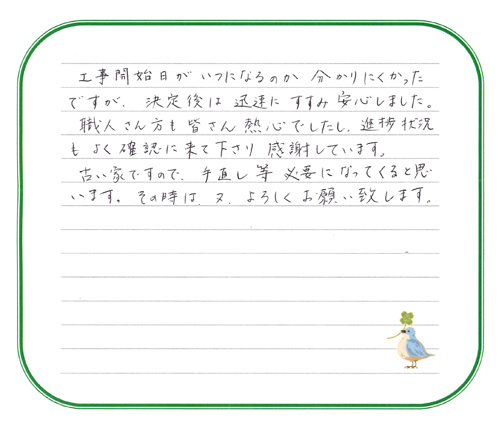 工事開始日が いつになるのか 分かりにくかった
ですが、決定後は 迅速に すすみ 安心しました。
職人さん方も 皆さん 熱心でしたし、進捗状況
も よく 確認に 来て下さり 感謝しています。
古い家ですので、手直し 等 必要に なってくると思
います。その時は、又、よろしく お願い 致します。